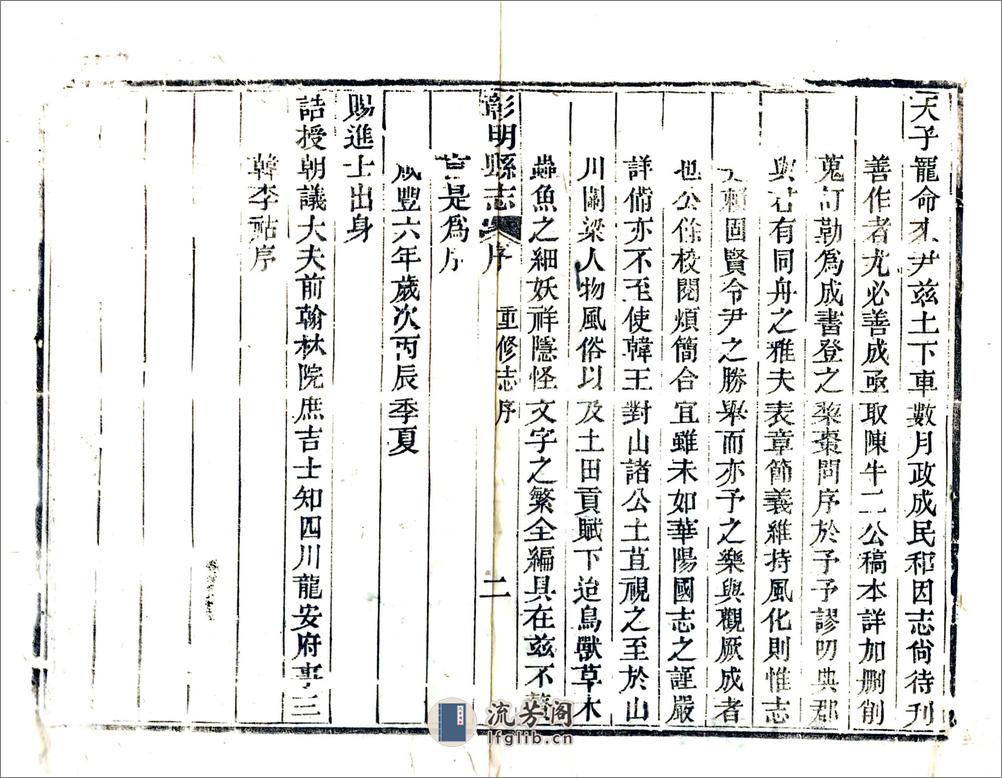 天子寵命來尹茲土下車數月政成民和因志尙待刊
善作者尤必善成亟取陳牛二公稿本詳加刪削
蒐訂勒爲成書登之棃棗問序於予予謬叨典郡
與君有同舟之雅夫表章節義維持風化則惟志
是賴固賢令尹之勝舉而亦予之樂與觀厥成者
也公餘校閱煩簡合宜雖未如華陽國志之謹嚴
詳備亦不至使韓王對山諸公土苴視之至於山
川關梁人物風俗以及土田貢賦下迨鳥獸草木
蟲魚之細妖祥隱怪文字之繁全編具在茲不
彭明縣志 序 重修志序 二
言是爲序
咸豐六年歲次丙辰季夏
賜進士出身
誥授朝議大夫前翰林院庶吉士知四川龍安府事三
韓李祜序
流芳阁
lfglib.cn